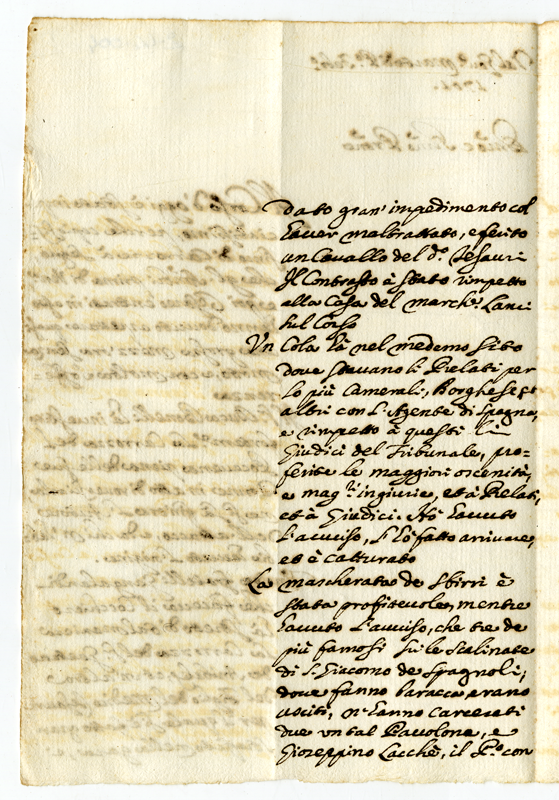 dato gran' impedimento col
hauer maltrattato, e ferito
un Cauallo del d.º Tesauri
Il Contrasto è stato rimpetto
alla Casa del march.e Lanci
sul Corso
Un Cola là nel medemo sito
doue stauano li Prelati per
lo più Camerali, Borghese, et
altri con l'Agente di Spagna,
e rimpetto à questi li
Giudici del Tribunale, pro=
ferite le maggiori oscenità,
e mag.ri ingiurie, et à Prelati,
et à Giudici. Hò hauuto
l'auuiso, l'hò fatto arriuare,
et è catturato
La mascherata de Sbirri è
stata profiteuole, mentre
hauuto l'auuiso, che tre de
più famosi sù le Scalinate
di S. Giacomo de Spagnoli,
doue fanno baracca erano
usciti, n'hanno carcerati
due un tal Pauolone, e
Gioseppino Lacchè, il P.º con